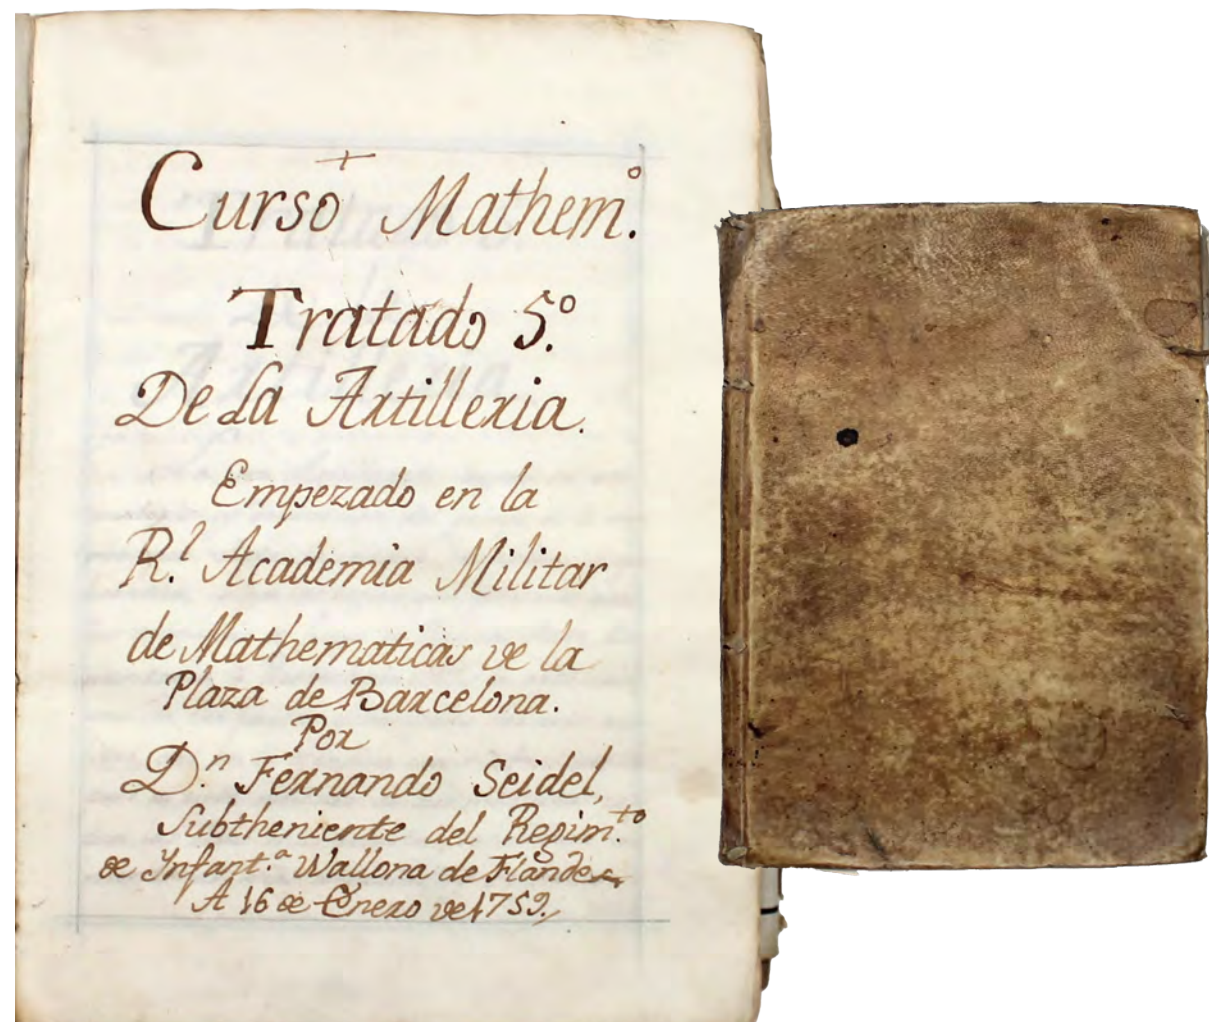 +
Curso Mathem.º
Tratado 5.º
De la Artilleria.
Empezado en la
R.l Academia Militar
de Mathematicas de la
Plaza de Barcelona.
Por
D.n Fernando Seidel,
Subtheniente del Regim.to
de Ynfant.a Wallona de Flandes
A 16 de Enero de 1759.